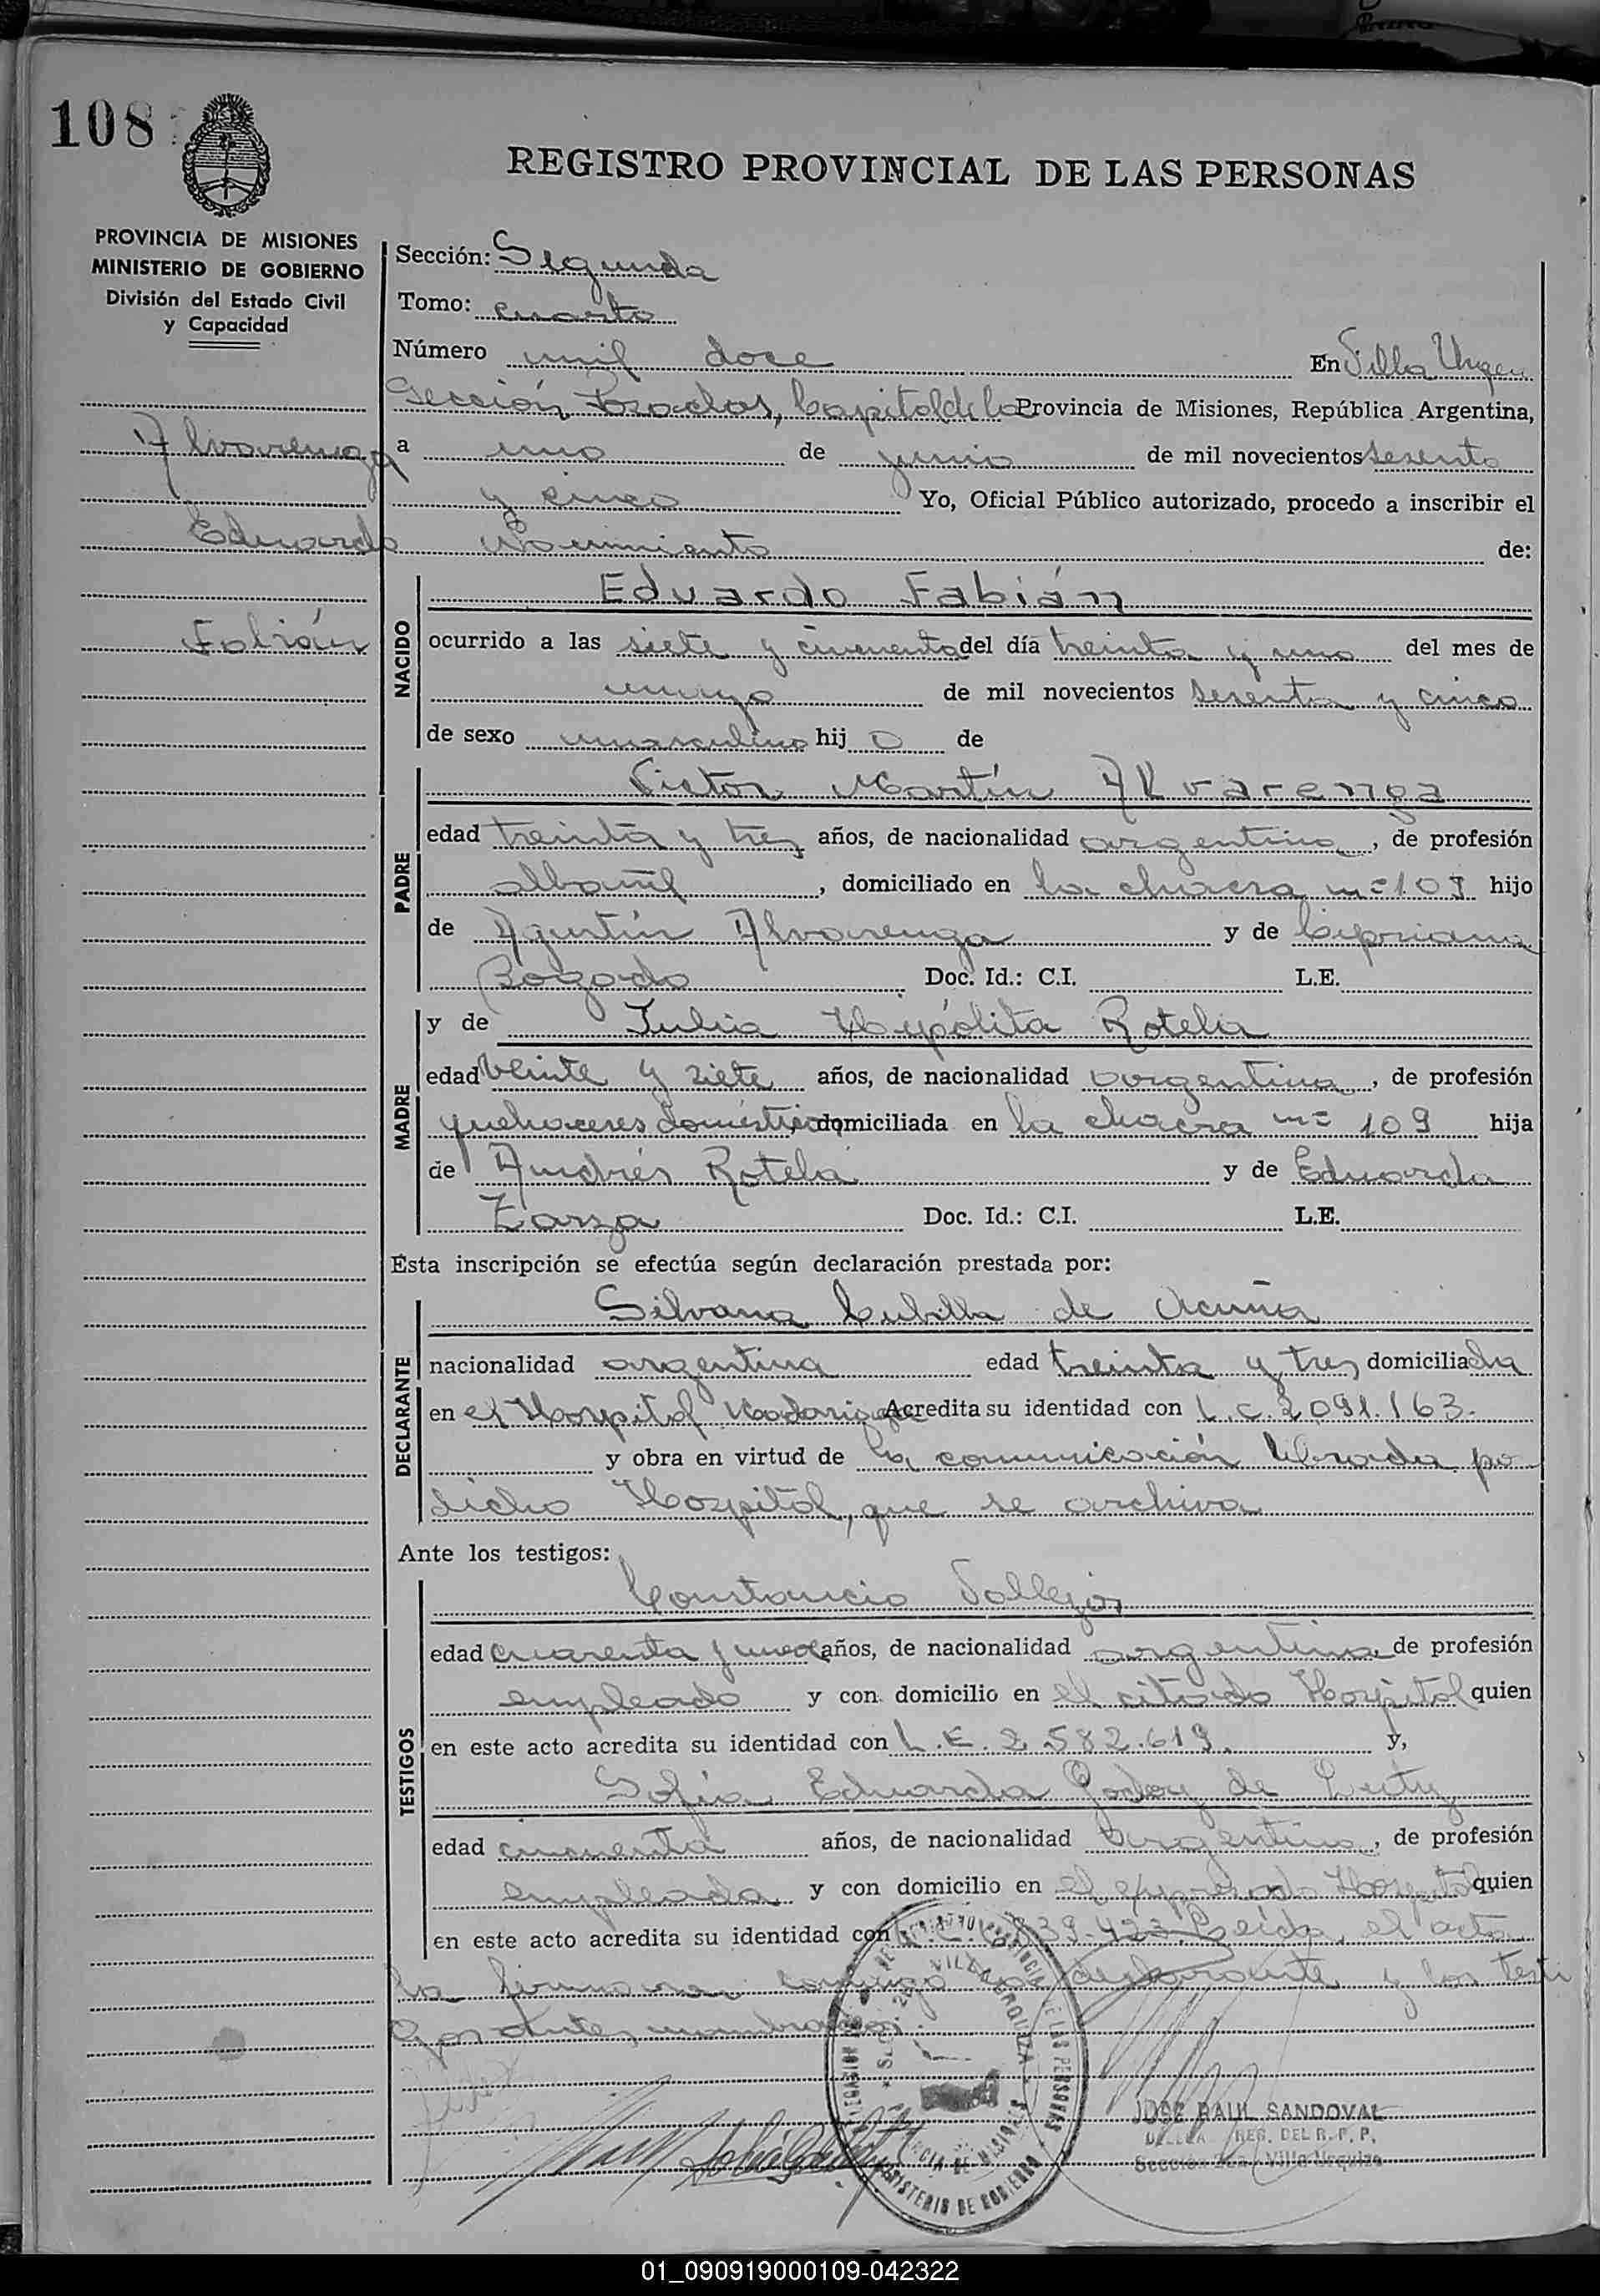 108
REGISTRO PROVINCIAL DE LAS PERSONAS
PROVINCIA DE MISIONES
MINISTERIO DE GOBIERNO
División del Estado Civil
y Capacidad
Alvarenga
Eduardo
Fabián
Sección: Segunda
Tomo: cuarto
Número mil doce En Villa
Sección Posadas, Capital de la Provincia de Misiones, República Argentina,
a uno de junio de mil novecientos sesenta
y cinco Yo, Oficial Público autorizado, procedo a inscribir el
Nacimiento de:
NACIDO
Eduardo Fabián
ocurrido a las siete y cincuenta del día treinta y uno del mes de
mayo de mil novecientos sesenta y cinco
de sexo masculino hij o de
PADRE
Victor Martín Alvarenga
edad treinta y tres años, de nacionalidad argentina, de profesión
albañil, domiciliado en la chacra nº 109 hijo
de Agustín Alvarenga y de Cipriana
Bogado Doc. Id.: C.I. L.E.
MADRE
y de Julia Hypólita Rotela
edad veinte y siete años, de nacionalidad argentina, de profesión
quehaceres domésticos, domiciliada en la chacra nº 109 hija
de Andrés Rotela y de Eduarda
Zarza Doc. Id.: C.I. L.E.
Esta inscripción se efectúa según declaración prestada por:
DECLARANTE
Silvana Cubilla de Acuña
nacionalidad argentina edad treinta y tres domiciliada
en el Hospital Madariaga Acredita su identidad con L.C. 2.091.163.
y obra en virtud de la comunicación librada po
dicho Hospital, que se archiva
Ante los testigos:
TESTIGOS
Constancio Vallejos
edad cuarenta y años, de nacionalidad argentina, de profesión
empleado y con domicilio en el citado Hospital quien
en este acto acredita su identidad con L.E. 2.582.619. y,
Sofia Eduarda Godoy de
edad cincuenta años, de nacionalidad argentina, de profesión
empleada y con domicilio en el expresado Hospital quien
en este acto acredita su identidad con 839.423. Leída el acta
la firmaron conmigo la declarante y los testi
gos antes nombrados.
VILLA URQUIZA
PROVINCIA DE MISIONES
MINISTERIO DE GOBIERNO
JOSE RAUL SANDOVAL
DEL R.P.P.
Sección 2da. Villa Urquiza
01_090919000109-042322